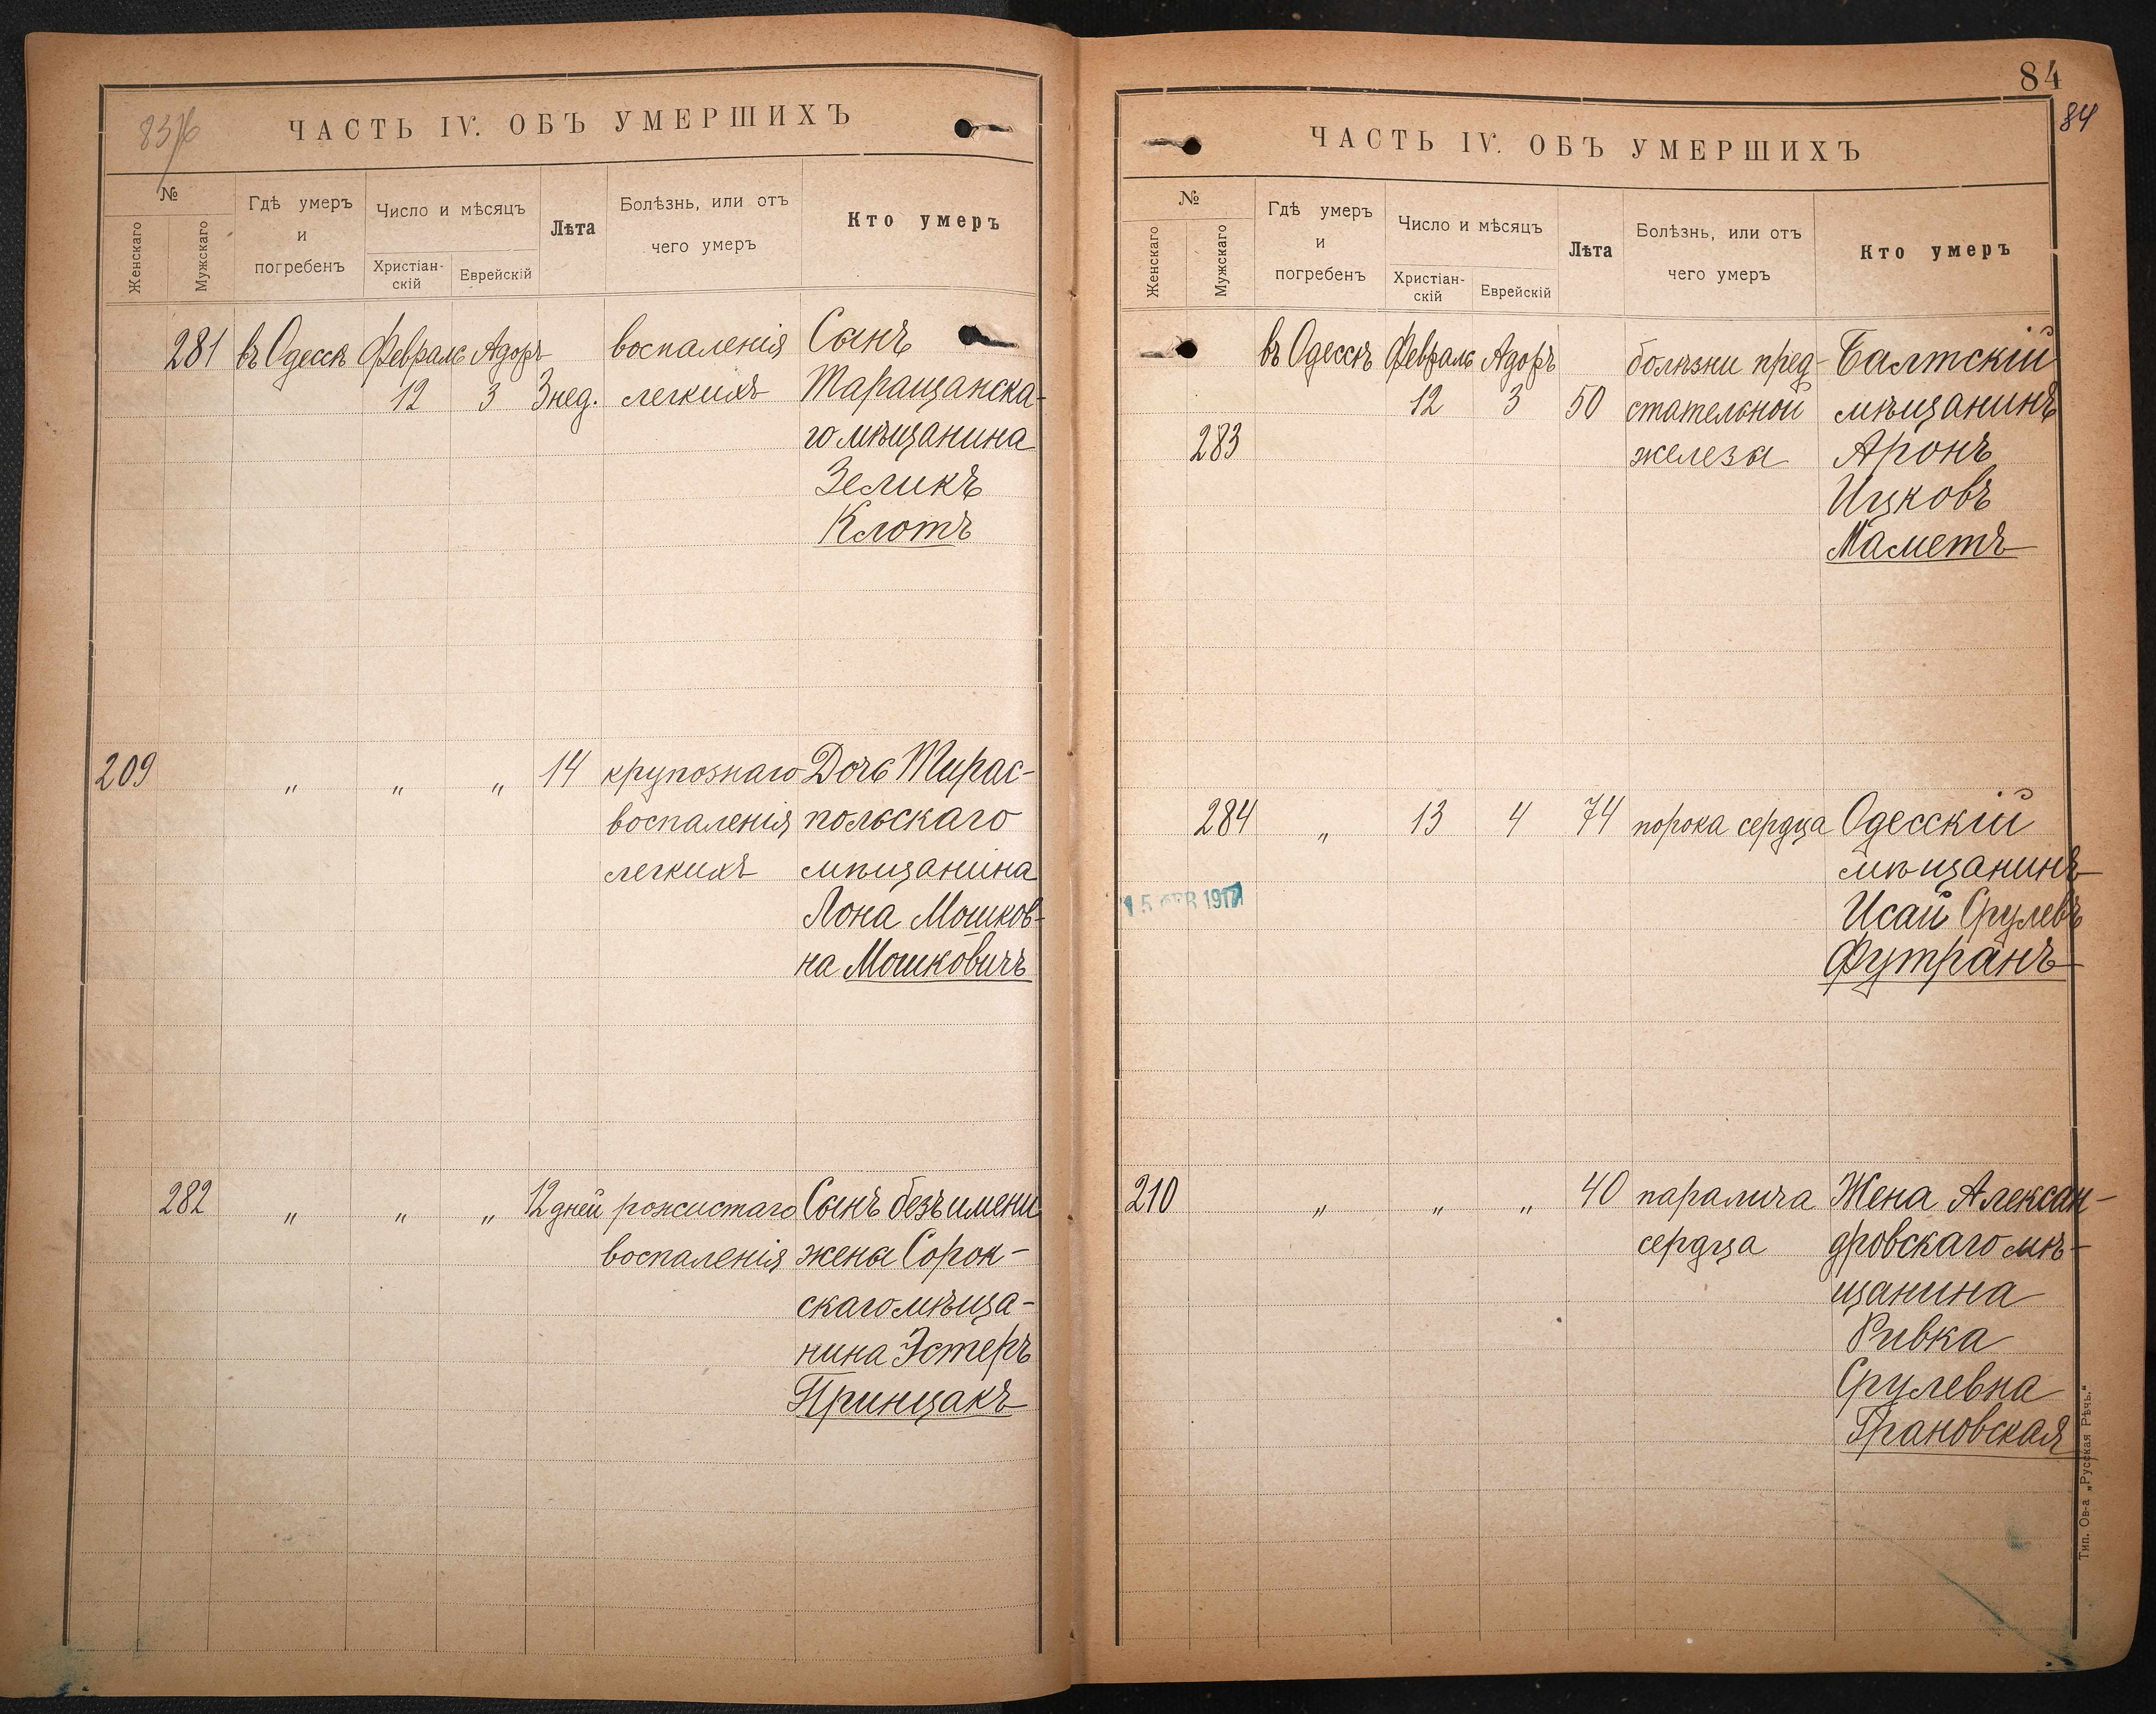 83/б
ЧАСТЬ IV. ОБЪ УМЕРШИХЪ
№
Женскаго
Мужскаго
Гдѣ умеръ
и
погребенъ
Число и мѣсяцъ
Христіан-
скій
Еврейскій
Лѣта
Болѣзнь, или отъ
чего умеръ
Кто умеръ
281 въ Одессѣ Февраль Адоръ воспаленія Сынъ
12 3 3 нед. легкихъ Таращанска-
го мѣщанина
Зеликъ
Клотъ
209 " " " 14 крупознаго Дочь Тирас-
воспаленія польскаго
легкихъ мѣщанина
Лона Мошков-
на Мошковичъ
282 " " " 12 дней рожистаго Сынъ безъ имени
воспаленія жены Сорок-
скаго мѣща-
нина Эстеръ
Принцакъ
84
84
ЧАСТЬ IV. ОБЪ УМЕРШИХЪ
№
Женскаго
Мужскаго
Гдѣ умеръ
и
погребенъ
Число и мѣсяцъ
Христіан-
скій
Еврейскій
Лѣта
Болѣзнь, или отъ
чего умеръ
Кто умеръ
въ Одессѣ Февраль Адоръ болѣзни пред- Балтскій
12 3 50 стательной мѣщанинъ
283 железы Аронъ
Ицковъ
Маметъ
284 " 13 4 74 порока сердца Одесскій
мѣщанинъ
15 ФЕВ 1917 Исай Срулевъ
Футранъ
210 " " " 40 паралича Жена Алексан-
сердца дровскаго мѣ-
щанина
Ривка
Срулевна
Грановская
Тип. Ов-а „Русская Рѣчь.“